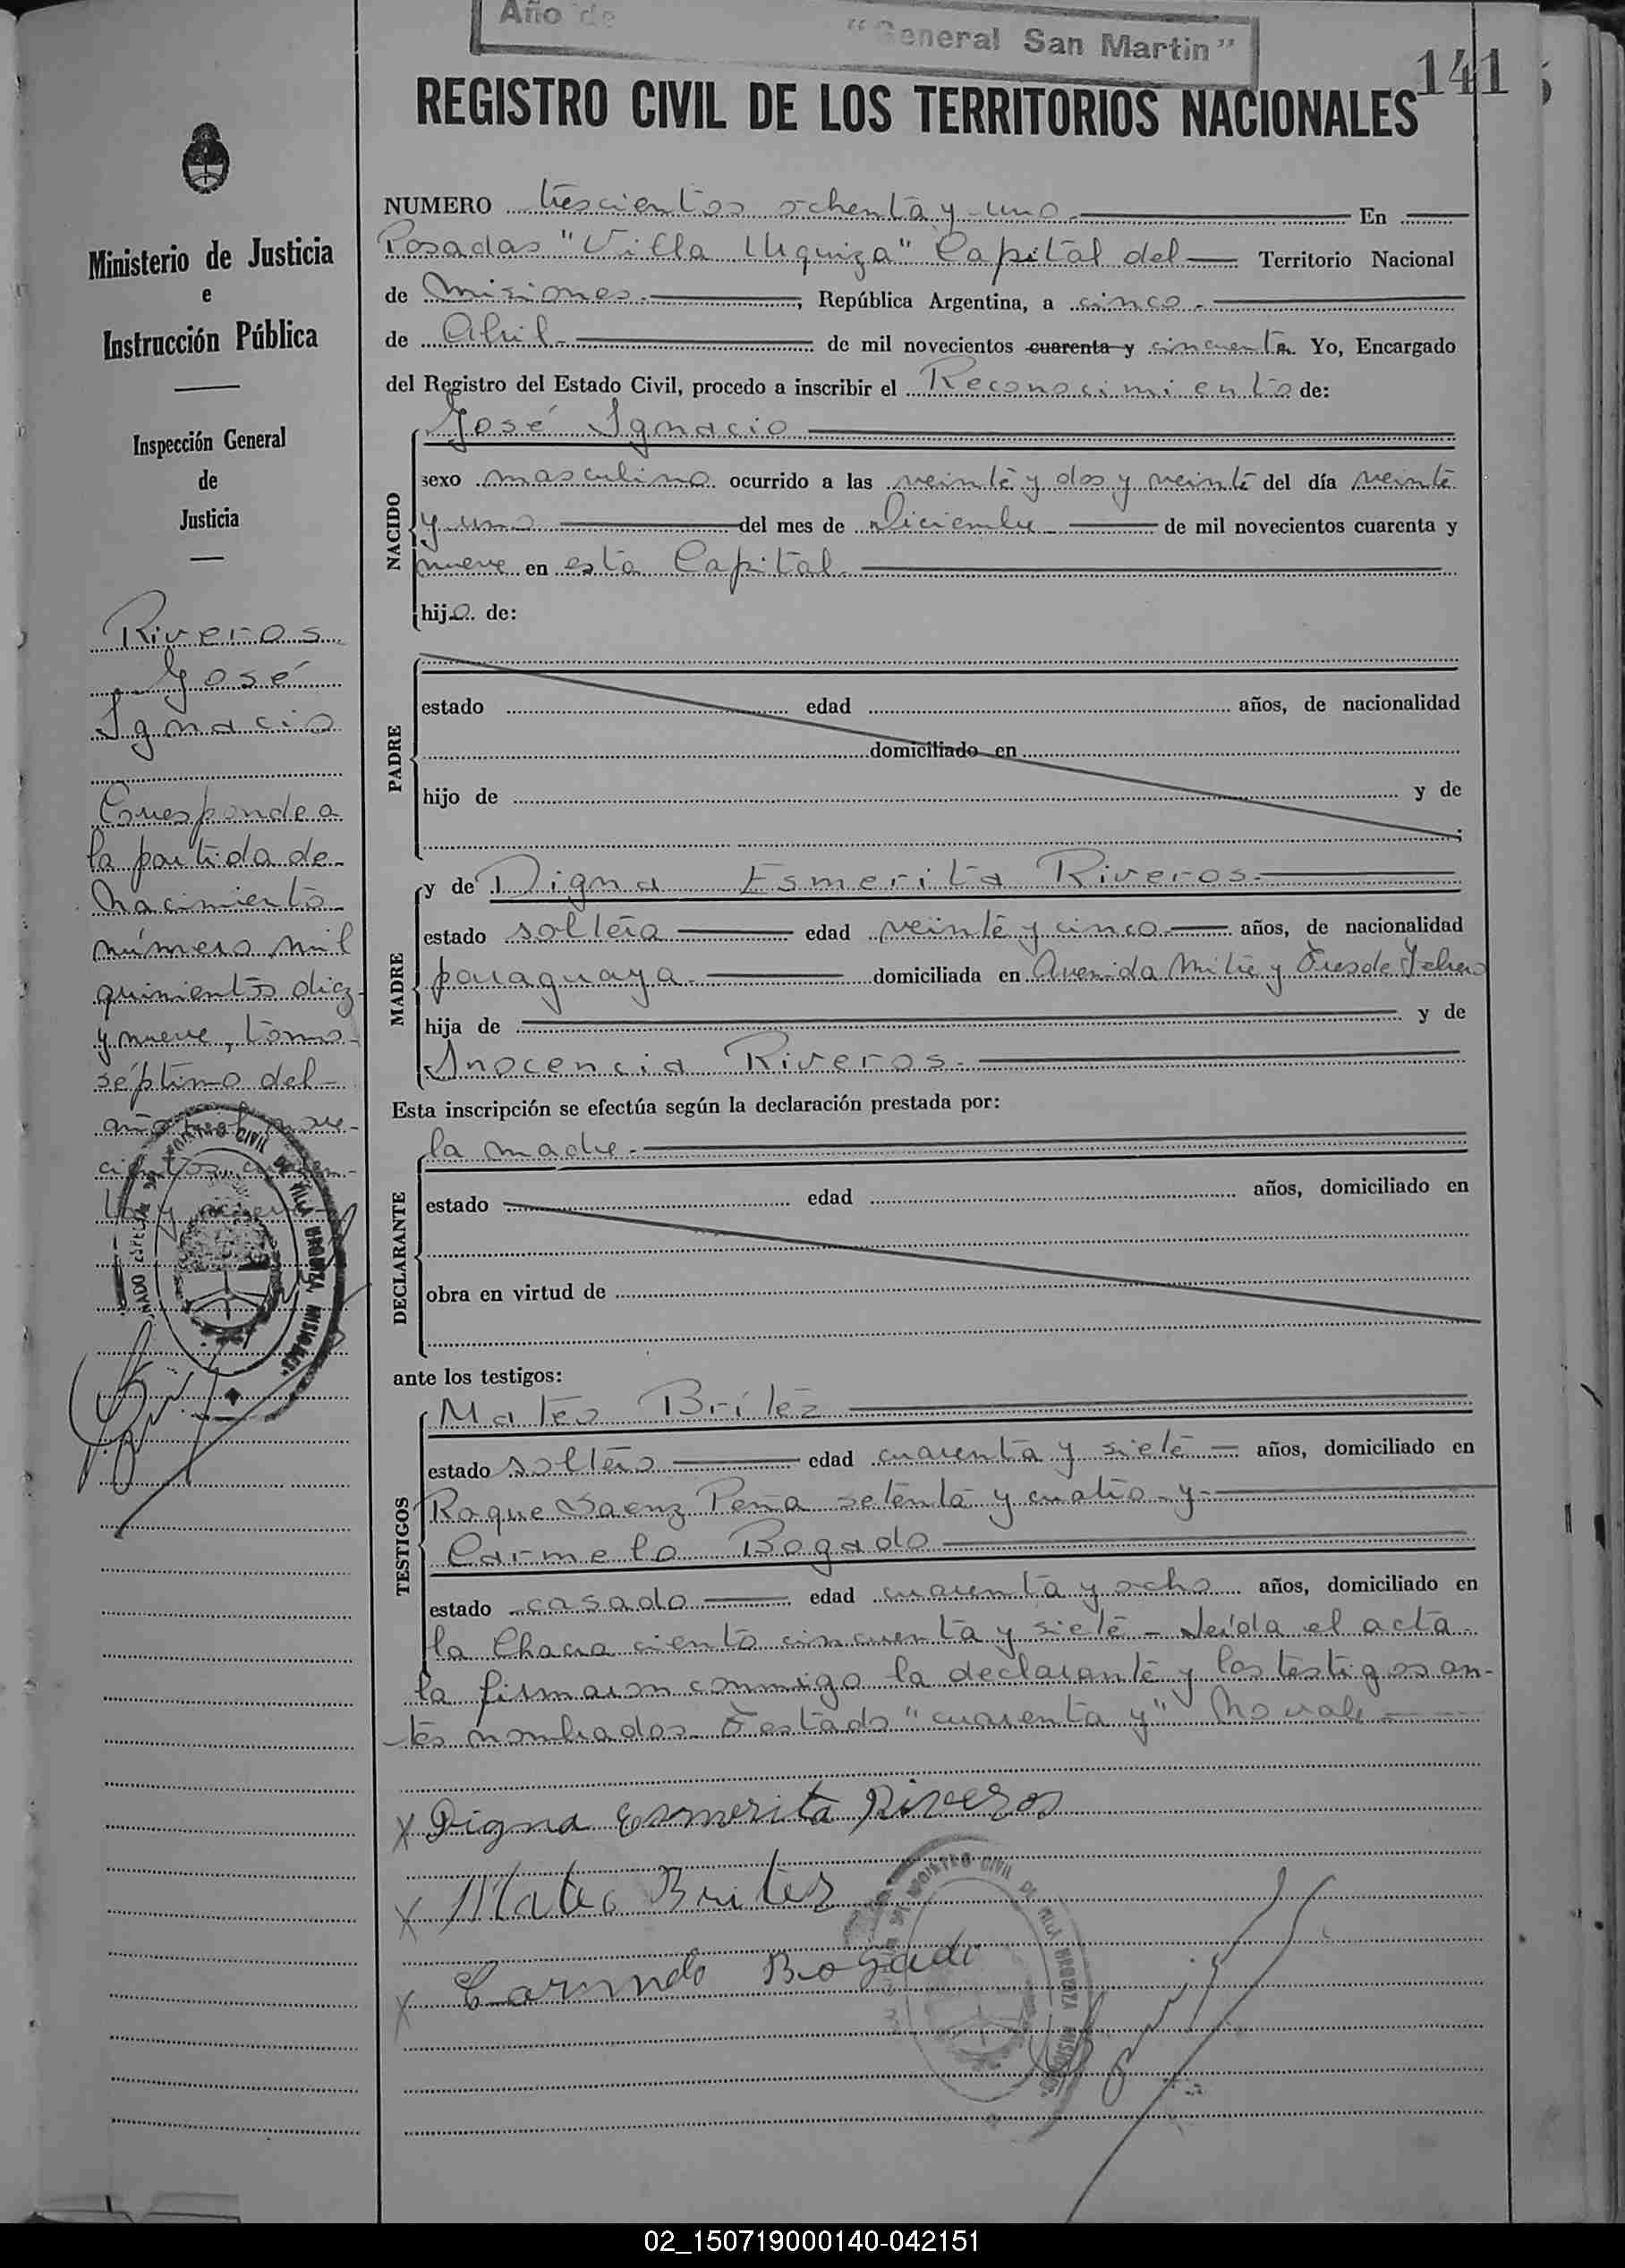 Año de "General San Martin"
141
REGISTRO CIVIL DE LOS TERRITORIOS NACIONALES
Ministerio de Justicia
e
Instrucción Pública
Inspección General
de
Justicia
Riveros
José
Ignacio
Corresponde a
la partida de
Nacimiento
número mil
quinientos diez
y nueve, tomo
séptimo del
año mil nove-
cientos cuaren-
ta y nueve
NUMERO trescientos ochenta y uno. En
Posadas "Villa Urquiza" Capital del Territorio Nacional
de Misiones. , República Argentina, a cinco.
de Abril. de mil novecientos cuarenta y cincuenta. Yo, Encargado
del Registro del Estado Civil, procedo a inscribir el Reconocimiento de:
NACIDO
José Ignacio
sexo masculino ocurrido a las veinte y dos y veinte del día veinte
y uno del mes de Diciembre de mil novecientos cuarenta y
nueve en esta Capital.
hijo de:
PADRE
estado edad años, de nacionalidad
domiciliado en
hijo de y de
;
MADRE
y de Digna Esmerita Riveros.
estado soltera edad veinte y cinco. años, de nacionalidad
paraguaya. domiciliada en Avenida Mitre y Tres de Febrero
hija de y de
Inocencia Riveros.
Esta inscripción se efectúa según la declaración prestada por:
DECLARANTE
la madre.
estado edad años, domiciliado en
obra en virtud de
ante los testigos:
TESTIGOS
Mateo Brítez
estado soltero edad cuarenta y siete años, domiciliado en
Roque Saenz Peña setenta y cuatro y
Carmelo Bogado
estado casado edad cuarenta y ocho años, domiciliado en
la Chacra ciento cincuenta y siete - Leída el acta
la firmaron conmigo la declarante y los testigos an-
tes nombrados. Testado "cuarenta y" No vale
X Digna Esmerita Riveros
X Mateo Britez
X Carmelo Bogado
REGISTRO CIVIL DE VILLA URQUIZA MISIONES
02_150719000140-042151